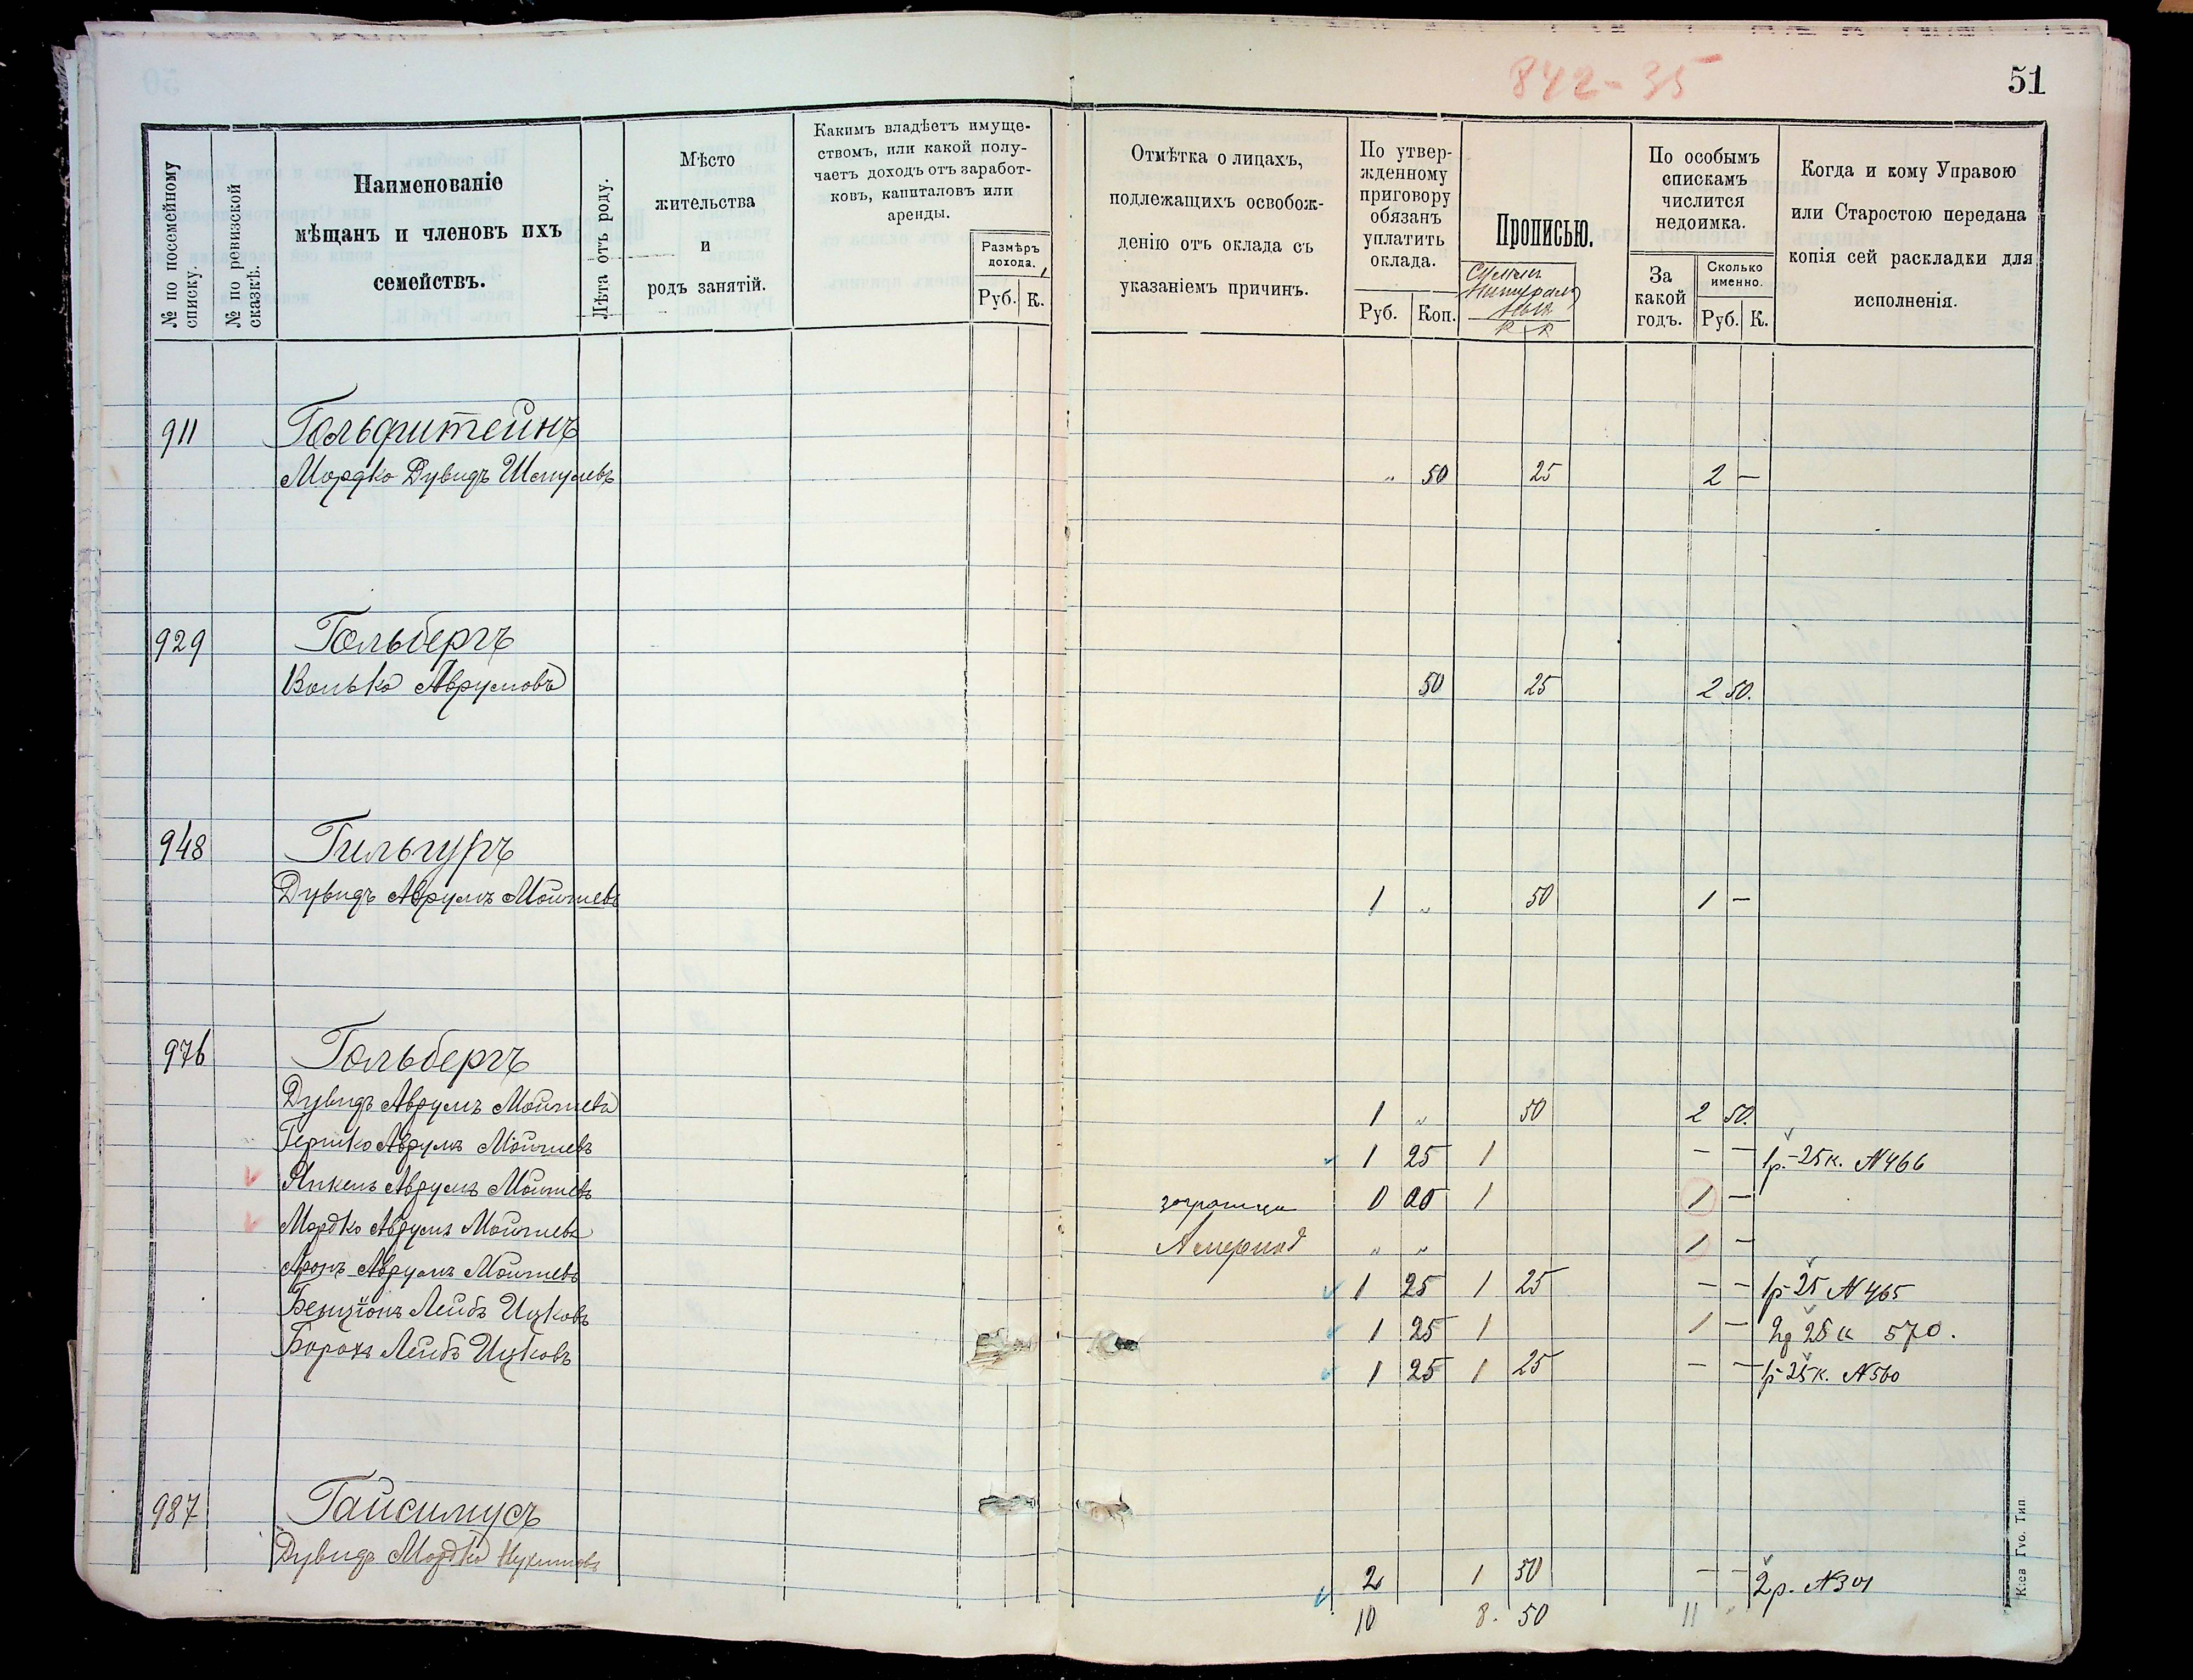 842-35
51
№ по посемейному списку.
№ по ревизской сказкѣ.
Наименованіе
мѣщанъ и членовъ ихъ
семействъ.
Лѣта отъ роду.
Мѣсто
жительства
и
родъ занятій.
Какимъ владѣетъ имуще-
ствомъ, или какой полу-
чаетъ доходъ отъ заработ-
ковъ, капиталовъ или
аренды.
Размѣръ
дохода.
Руб. К.
Отмѣтка о лицахъ,
подлежащихъ освобож-
денію отъ оклада съ
указаніемъ причинъ.
По утвер-
жденному
приговору
обязанъ
уплатить
оклада.
Руб. Коп.
Прописью.
Р К
По особымъ
спискамъ
числится
недоимка.
За
какой
годъ.
Сколько
именно.
Руб. К.
Когда и кому Управою
или Старостою передана
копія сей раскладки для
исполненія.
911 Гольдштейнъ
Мордко Дувидъ Шмулевъ „ 50 25 2 —
929 Гольбергъ
Волько Аврумовъ 50 25 2 50.
948 Гильгуръ
Дувидъ Аврумъ Мошиевъ 1 „ 50 1 —
976 Гольбергъ
Дувидъ Аврумъ Мошиевъ 1 „ 50 2 50.
Гершко Аврумъ Мошиевъ 1 25 1 — — 1р.-25к. N466
Янкель Аврумъ Мошиевъ заграница 0 00 1 1 —
Мордко Аврумъ Мошиевъ „ „ 1 —
Аронъ Аврумъ Мошиевъ 1 25 1 25 — — 1р-25 N465
Бенціонъ Лейбъ Ицковъ 1 25 1 1 — 2р 25к 570.
Борохъ Лейбъ Ицковъ 1 25 1 25 — — 1р-25к. N560
987 Гайсинусъ
Дувидъ Мордко 2 1 50 — — 2р. N301
10 8. 50 11 „
Кіев Гуо. Тип